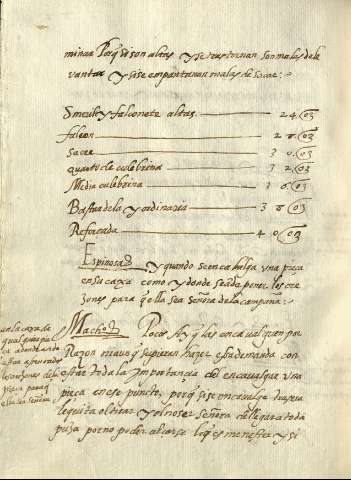 minar Porq̃ si son altas y se trastornan son malas de le
vantar y si se empantanan malas de sacar:
Smeril y falconete altas 24
falcon 28
sacre 30
quarto de culebrina 32
Media culebrina 36
Bastardela y ordinaria 38
Reforcada 40
Espinosa y quando se encabalga una pieca
en su caxa como y donde se a de poner los exe
zones para q̃ ella sea señora de la campaña:
Machod Pocos Ay q̃ las encavalguen por
Razon mas q̃ supieran hazer esta demanda con
siste toda la Importancia del encavalgar una
pieca en ese puncto, porq̃ si se encavalga trasera
le quita el tirar y el no ser señora de llegar a toda
punta por no poder alcarse lo q̃ es menester y si
en la caxa de
ella señora